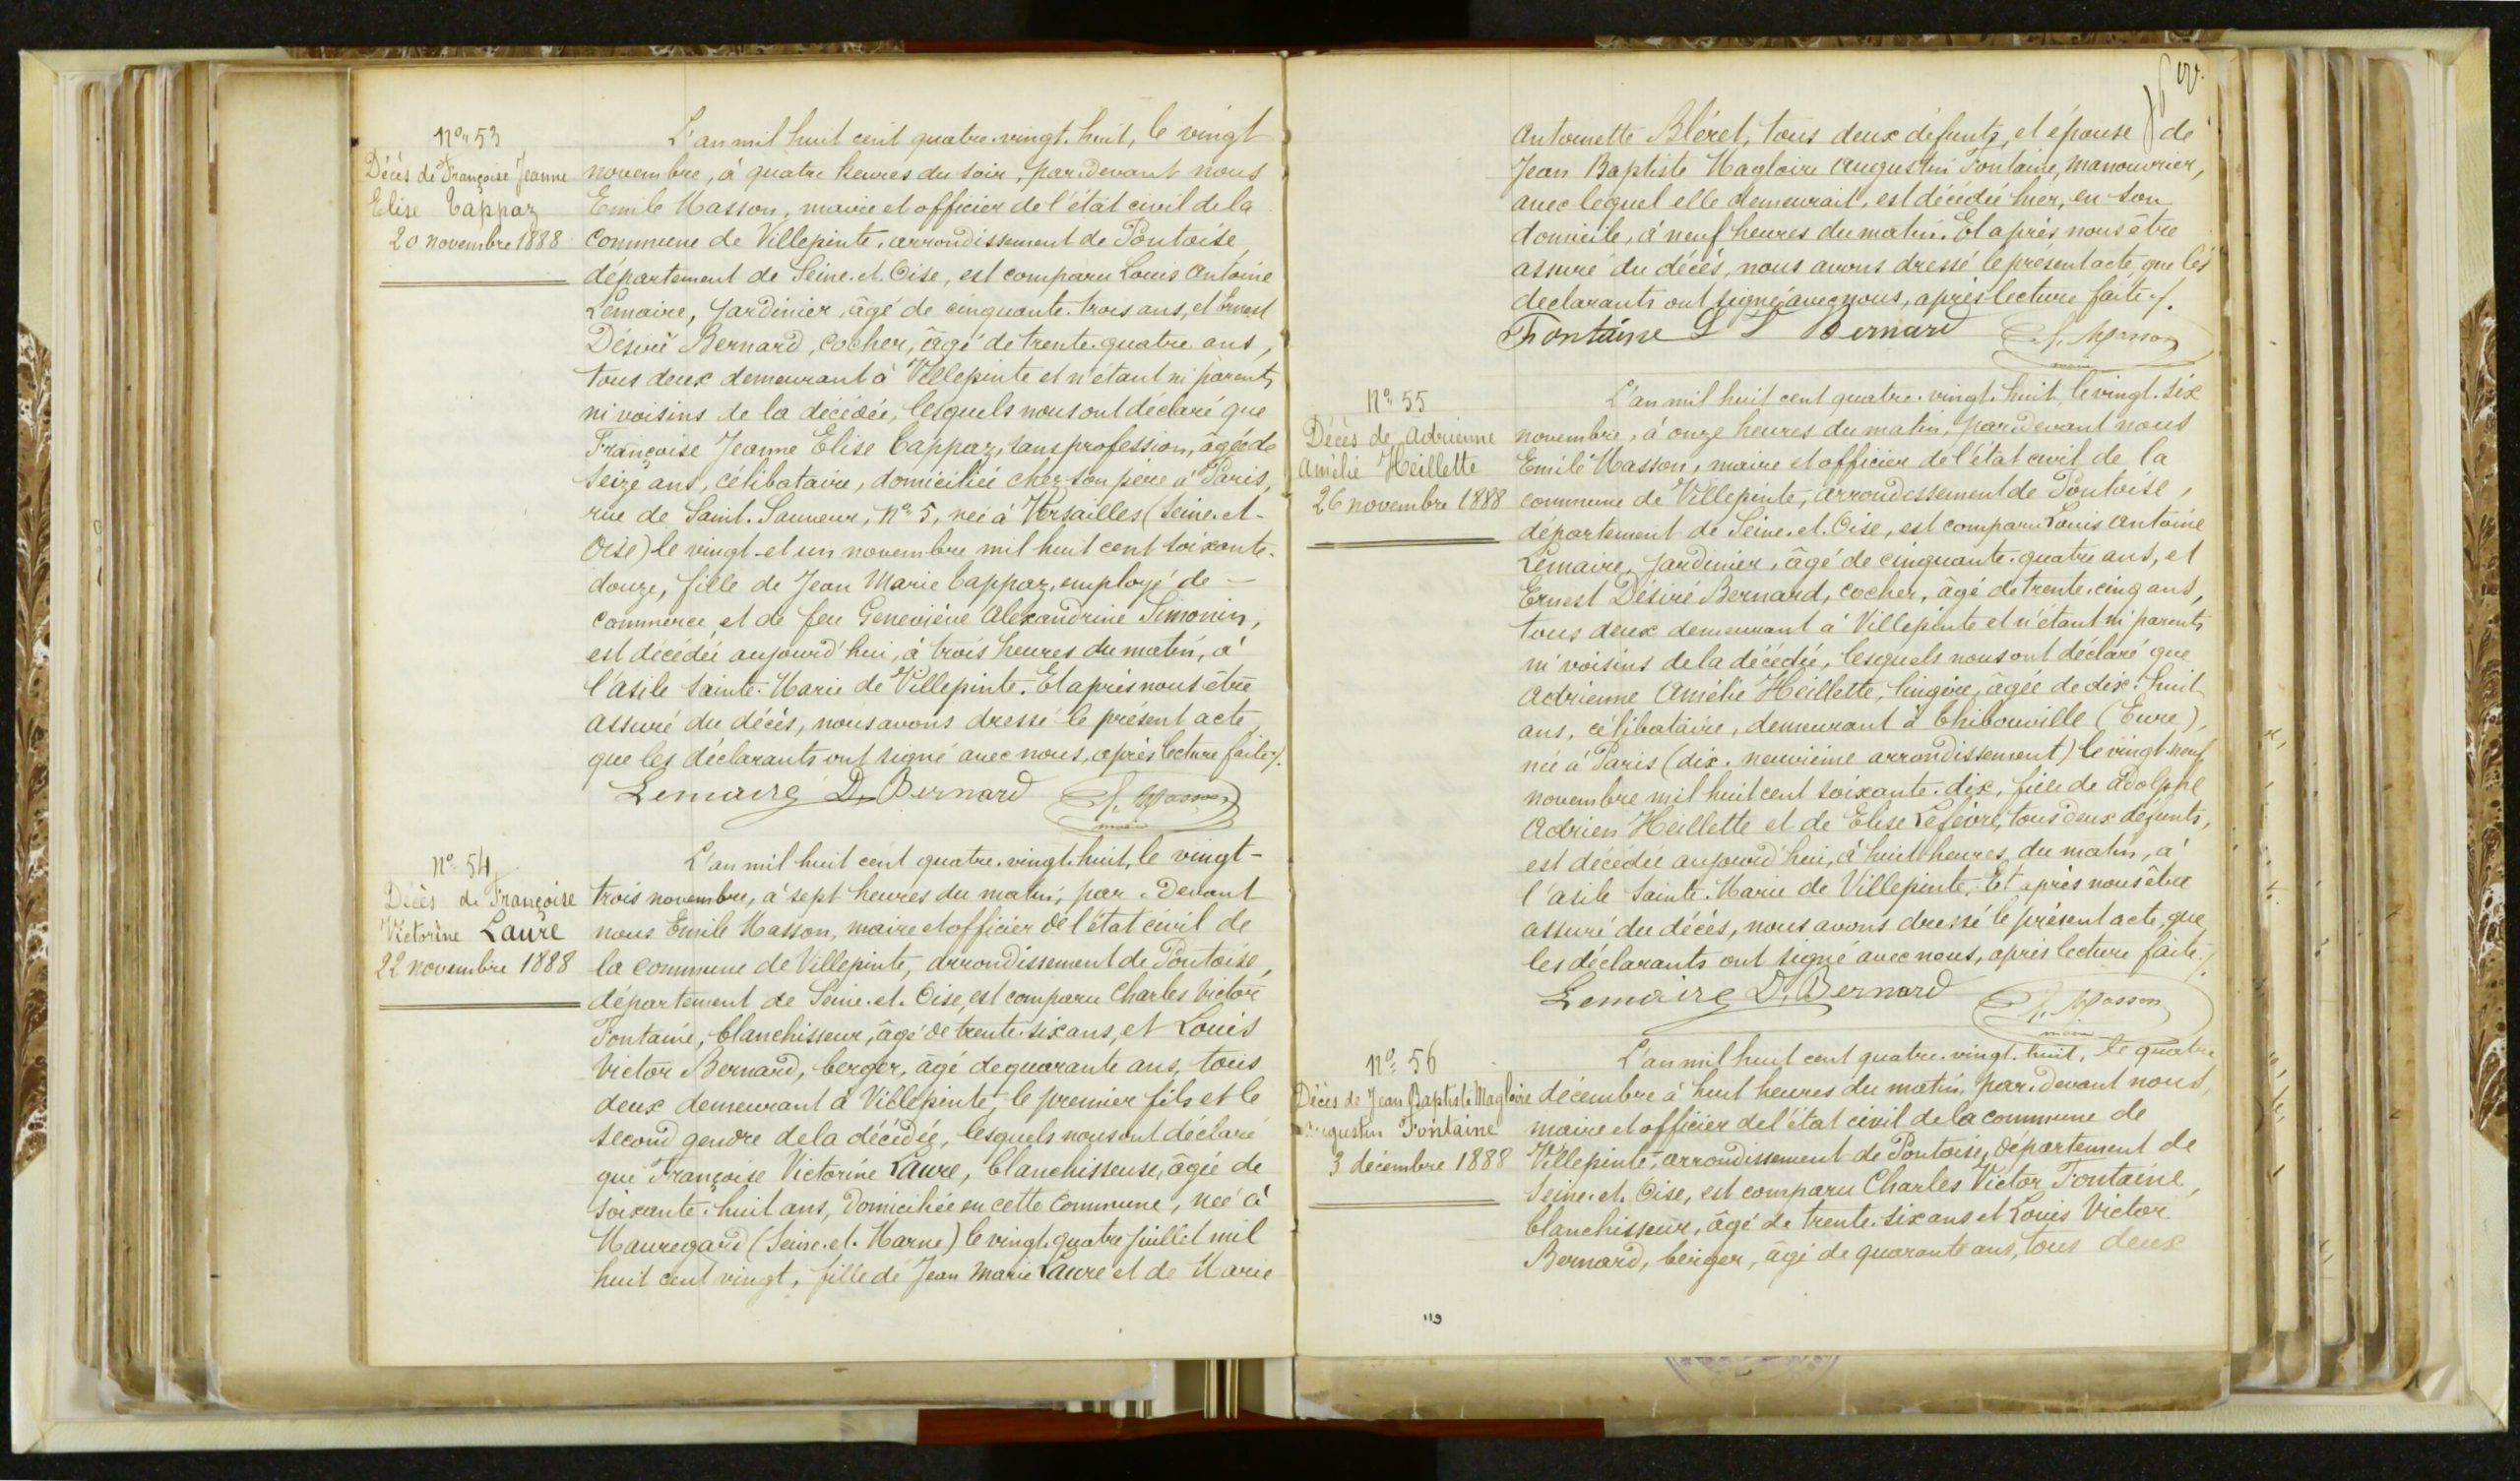 Nº 53
Décès de Françoise Jeanne
Elise Cappaz
20 novembre 1888
L'an mil huit cent quatre-vingt-huit, le vingt
novembre, à quatre heures du soir, par-devant nous
Emile Masson, maire et officier de l'état civil de la
commune de Villepinte, arrondissement de Pontoise,
département de Seine-et-Oise, est comparu Louis Antoine
Lemaire, jardinier, âgé de cinquante-trois ans, et Ernest
Désiré Bernard, cocher, âgé de trente-quatre ans,
tous deux demeurant à Villepinte et n'étant ni parents
ni voisins de la décédée, lesquels nous ont déclaré que
Françoise Jeanne Elise Cappaz, sans profession, âgée de
seize ans, célibataire, domiciliée chez son père à Paris,
rue de Saint-Sauveur, nº 5, née à Versailles (Seine-et-
Oise) le vingt-et-un novembre mil huit cent soixante-
douze, fille de Jean Marie Cappaz, employé de -
commerce et de feu Geneviève Alexandrine Simonin,
est décédée aujourd'hui, à trois heures du matin, à
l'asile Sainte-Marie de Villepinte. Et après nous être
assuré du décès, nous avons dressé le présent acte,
que les déclarants ont signé avec nous, après lecture faite./.
Lemaire D. Bernard E. Masson
maire
Nº 54
Décès de Françoise
Victorine Laure
22 novembre 1888
L'an mil huit cent quatre-vingt-huit, le vingt-
trois novembre, à sept heures du matin, par-devant
nous Emile Masson, maire et officier de l'état civil de
la commune de Villepinte, arrondissement de Pontoise,
département de Seine-et-Oise, est comparu Charles Victor
Fontaine, blanchisseur, âgé de trente-six ans, et Louis
Victor Bernard, berger, âgé de quarante ans, tous
deux demeurant à Villepinte, le premier fils et le
second gendre de la décédée, lesquels nous ont déclaré
que Françoise Victorine Laure, blanchisseuse, âgée de
soixante-huit ans, domiciliée en cette commune, née à
Mauregard (Seine-et-Marne) le vingt-quatre juillet mil
huit cent vingt, fille de Jean Marie Laure et de Marie
Antoinette Bléret, tous deux défunts, et épouse de
Jean Baptiste Magloire Augustin Fontaine, manouvrier,
avec lequel elle demeurait, est décédée hier, en son
domicile, à neuf heures du matin. Et après nous être
assuré du décès, nous avons dressé le présent acte, que les
déclarants ont signé avec nous, après lecture faite./.
Fontaine L V Bernard E. Masson
maire
Nº 55
Décès de Adrienne
Amélie Heillette
26 novembre 1888
L'an mil huit cent quatre-vingt-huit, le vingt-six
novembre, à onze heures du matin, par-devant nous
Emile Masson, maire et officier de l'état civil de la
commune de Villepinte, arrondissement de Pontoise,
département de Seine-et-Oise, est comparu Louis Antoine
Lemaire, jardinier, âgé de cinquante-quatre ans, et
Ernest Désiré Bernard, cocher, âgé de trente-cinq ans,
tous deux demeurant à Villepinte et n'étant ni parents
ni voisins de la décédée, lesquels nous ont déclaré que
Adrienne Amélie Heillette, lingère, âgée de dix-huit
ans, célibataire, demeurant à Thibouville (Eure),
née à Paris (dix-neuvième arrondissement) le vingt-neuf
novembre mil huit cent soixante-dix, fille de Adolphe
Adrien Heillette et de Elise Lefèvre, tous deux défunts,
est décédée aujourd'hui, à huit heures du matin, à
l'asile Sainte-Marie de Villepinte. Et après nous être
assuré du décès, nous avons dressé le présent acte, que
les déclarants ont signé avec nous, après lecture faite./.
Lemaire D. Bernard E. Masson
maire
Nº 56
Décès de Jean Baptiste Magloire
Augustin Fontaine
3 décembre 1888
L'an mil huit cent quatre-vingt-huit, le quatre
décembre à huit heures du matin, par-devant nous,
maire et officier de l'état civil de la commune de
Villepinte, arrondissement de Pontoise, département de
Seine-et-Oise, est comparu Charles Victor Fontaine,
blanchisseur, âgé de trente-six ans et Louis Victor
Bernard, berger, âgé de quarante ans, tous deux
119